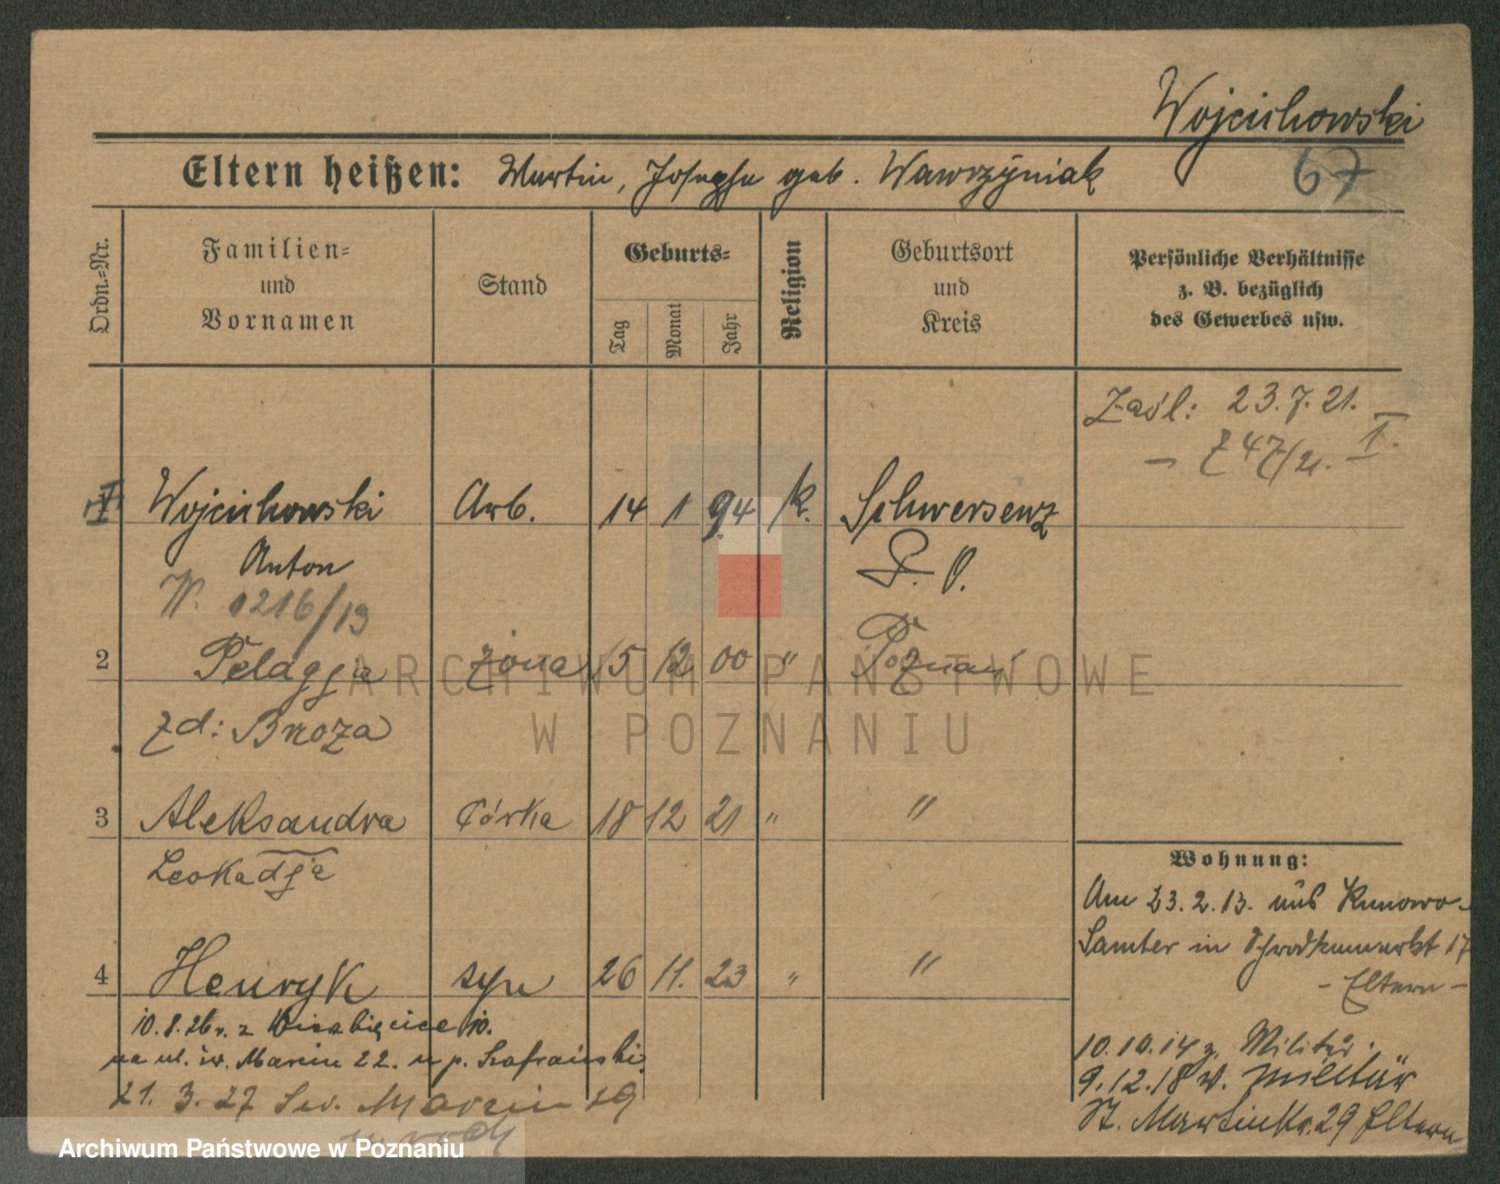 Wojciechowski
67
Eltern heißen: Martin, Josepha geb. Wawrzyniak
Ordn.-Nr.
Familien-
und
Vornamen
Stand
Geburts-
Tag
Monat
Jahr
Religion
Geburtsort
und
Kreis
Persönliche Verhältnisse
z. B. bezüglich
des Gewerbes usw.
Zaśl: 23.7.21.
- Z 47/21. I.
1 Wojciechowski Arb. 14 1 94 k. Schwersenz
Anton P. O.
W. 1216/19
2 Pelagja żona 15 12 00 " Poznań
zd: Broza
3 Aleksandra córka 18 12 21 " "
Leokadja
4 Henryk syn 26 11. 23 " "
10.8.26 r. z
na ul. św. Marcin 22. u p. Szafrański
21. 3. 27 Św. Marcin 29
Wohnung:
Am 23.2.13. aus Kunowo-
Samter in Schrodkamarkt 17
- Eltern -
10.10.14 z. Militär.
9.12.18 v. Militär
St. Martinstr. 29 Eltern
ARCHIWUM PAŃSTWOWE
W POZNANIU
Archiwum Państwowe w Poznaniu